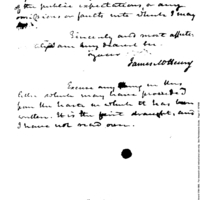 of the public expectations, or any
omissions or faults into which I may
Sincerely and most affec
I am my dear Sir
Yours
James McHenry
Excuse any in this
letter which may have proceeded
from the haste in which it has been
written. It is the first draught, and
I have not read over.